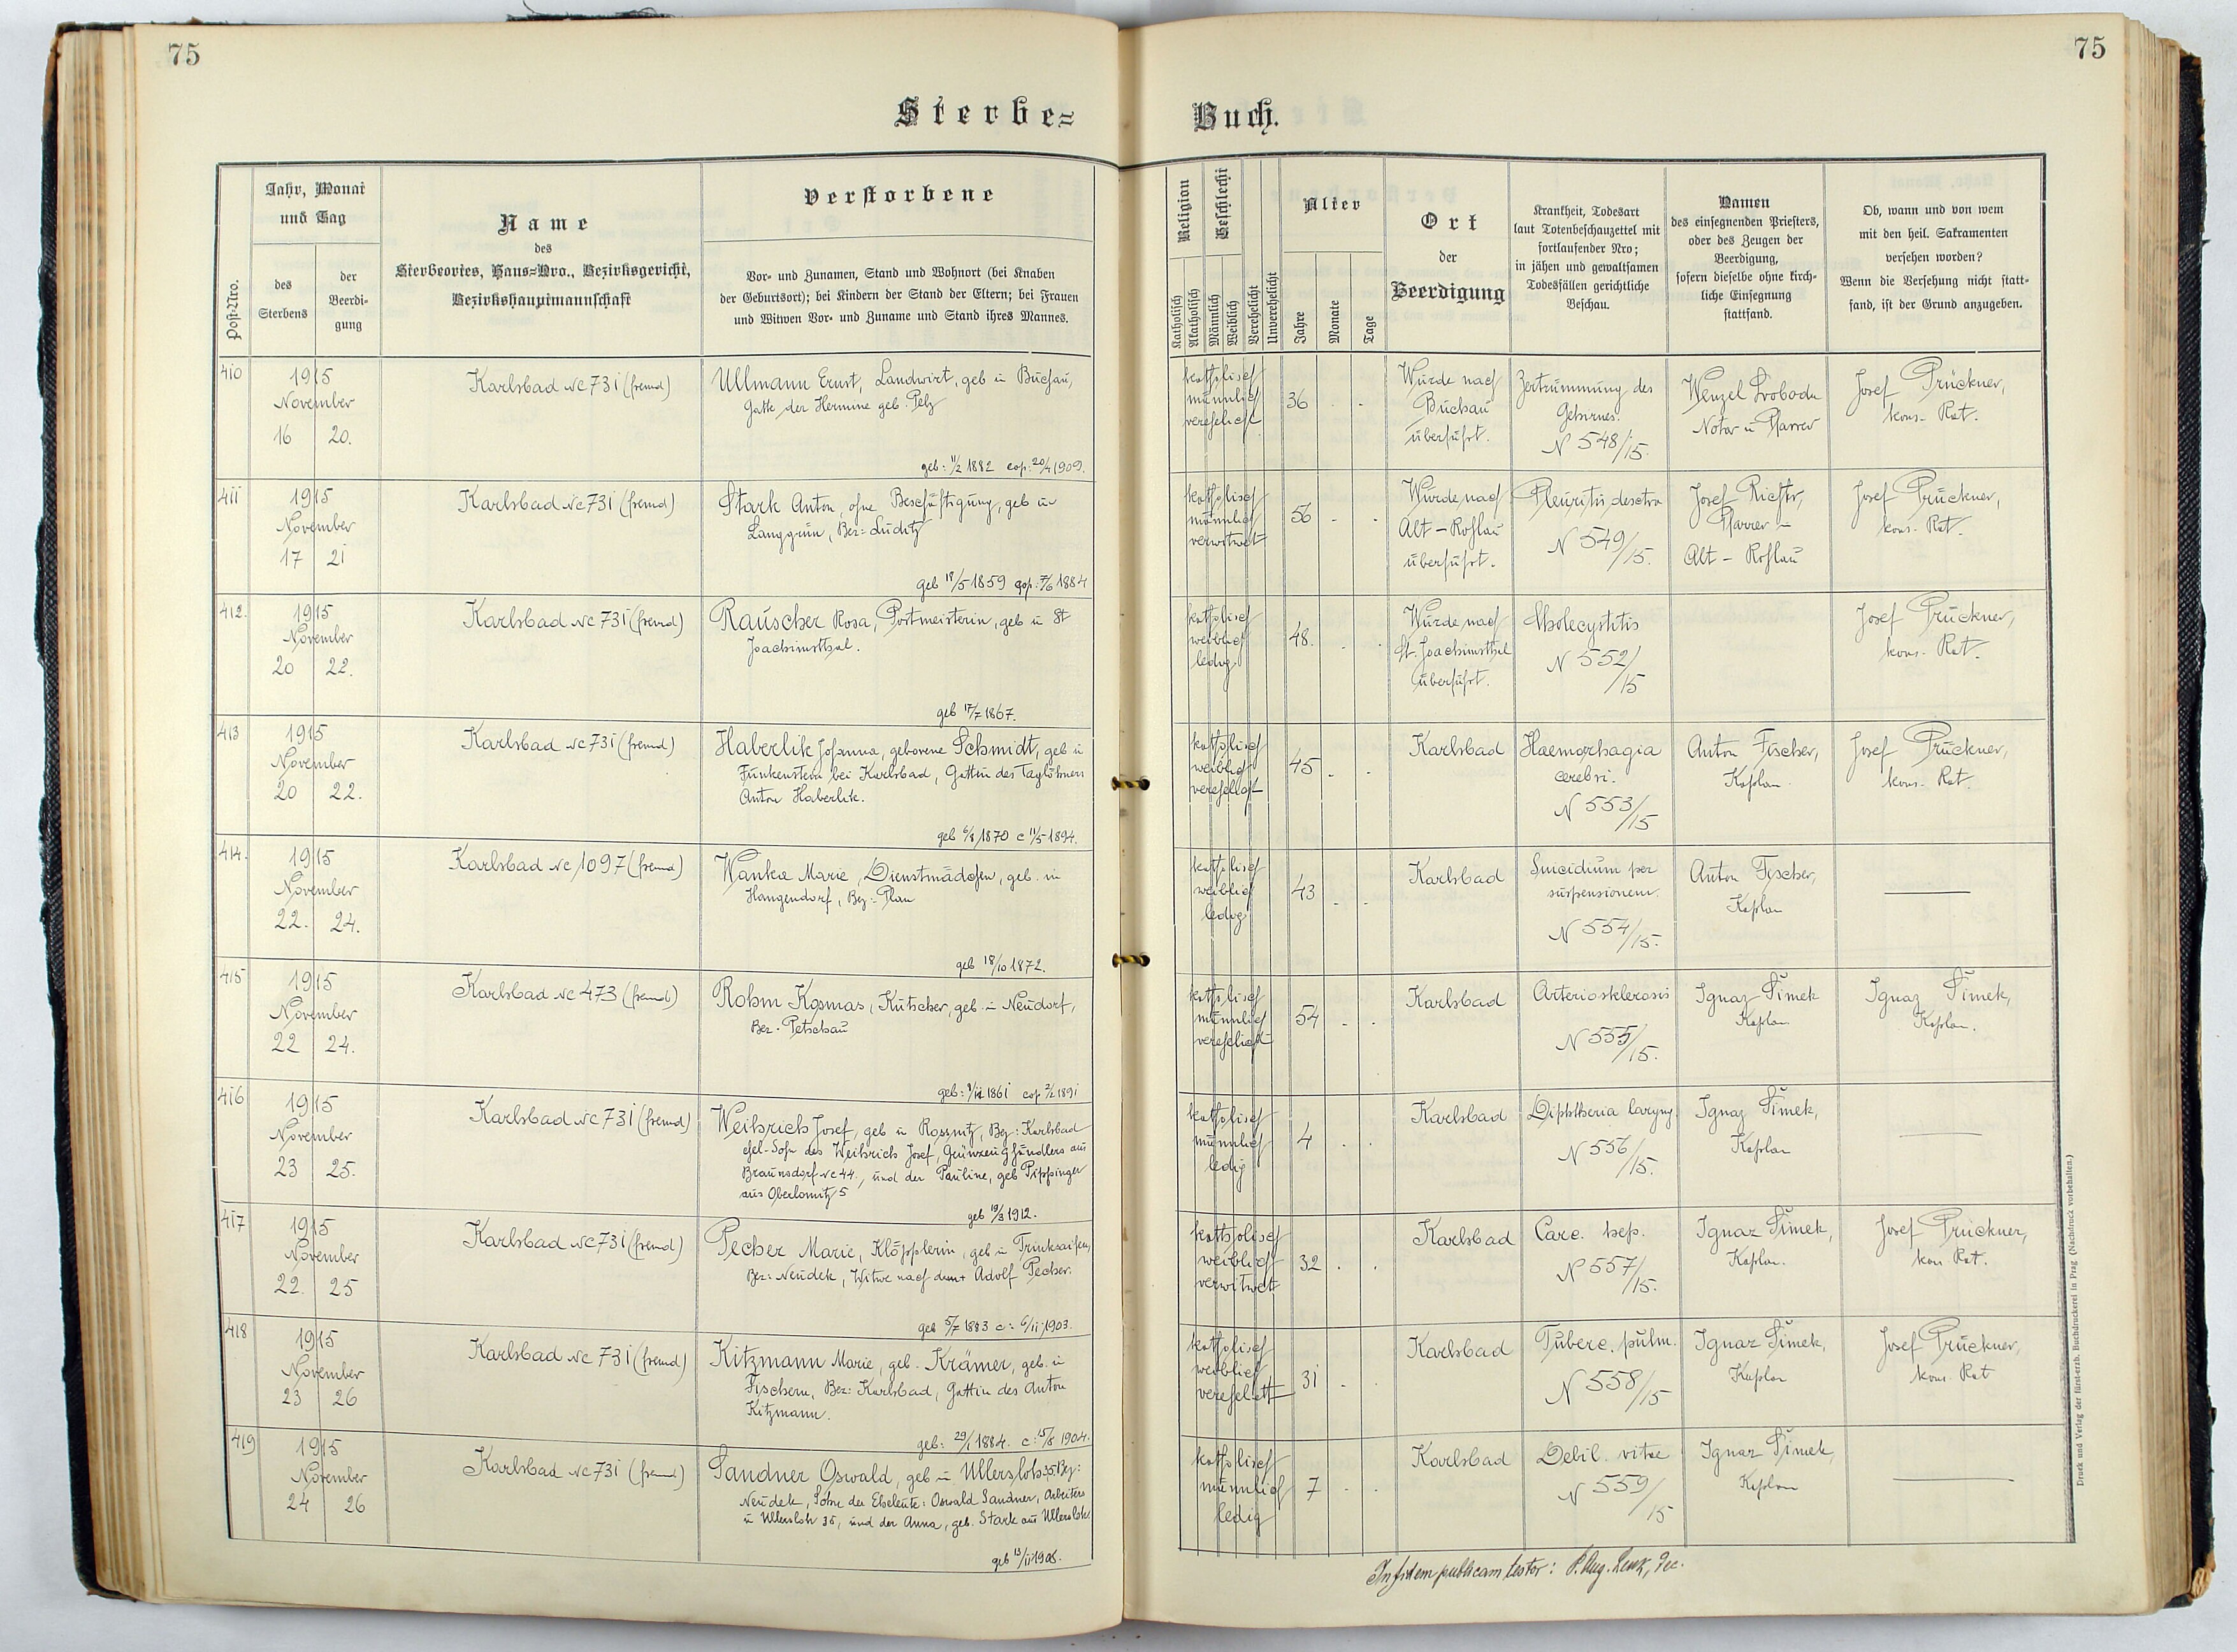 75
75
Sterbe=
Buch.
Post-Nro.
Jahr, Monat
und Tag
des
Sterbens
der
Beerdi-
gung
Name
des
Sterbeortes, Haus=Nro., Bezirksgericht,
Bezirkshauptmannschaft
Verstorbene
Vor- und Zunamen, Stand und Wohnort (bei Knaben
der Geburtsort); bei Kindern der Stand der Eltern; bei Frauen
und Witwen Vor- und Zuname und Stand ihres Mannes.
Religion
Katholisch
Akatholisch
Geschlecht
Männlich
Weiblich
Verehelicht
Unverehelicht
Alter
Jahre
Monate
Tage
Ort
der
Beerdigung
Krankheit, Todesart
laut Totenbeschauzettel mit
fortlaufender Nro;
in jähen und gewaltsamen
Todesfällen gerichtliche
Beschau.
Namen
des einsegnenden Priesters,
oder des Zeugen der
Beerdigung,
sofern dieselbe ohne kirch-
liche Einsegnung
stattfand.
Ob, wann und von wem
mit den heil. Sakramenten
versehen worden?
Wenn die Versehung nicht statt-
fand, ist der Grund anzugeben.
410
1915
November
16 20.
Karlsbad Nc 731 (fremd)
Ullmann Ernst, Landwirt, geb in Buchau,
Gatte der Hermine geb. Pelz
geb: 11/2 1882 cop: 20/4 1909.
katholisch
männlich
verehelicht
36 . .
Wurde nach
Buchau
überführt.
Zertrümmung des
Gehirnes.
N 548/15.
Wenzel Svoboda
Notar u Pfarrer
Josef Prückner,
kons. Rat.
411
1915
November
17 21
Karlsbad Nc 731 (fremd)
Stark Anton, ohne Beschäftigung, geb in
Langgrün, Bez: Luditz
geb 18/5 1859 cop: 7/6 1884
katholisch
männlich
verwitwet
56 . .
Wurde nach
Alt-Rohlau
überführt.
Pleuritis dextra
N 549/15.
Josef Richter,
Pfarrer in
Alt-Rohlau
Josef Prückner,
kons. Rat.
412.
1915
November
20 22.
Karlsbad Nc 731 (fremd)
Rauscher Rosa, Postmeisterin, geb in St
Joachimsthal.
geb 17/7 1867.
katholisch
weiblich
ledig
48. . .
Wurde nach
St. Joachimsthal
überführt.
Cholecystitis
N 552/15
Josef Prückner,
kons. Rat.
413
1915
November
20 22.
Karlsbad Nc 731 (fremd)
Haberlik Johanna, geborene Schmidt, geb in
Funkenstein bei Karlsbad, Gattin des Taglöhners
Anton Haberlik.
geb 6/8 1870 c 11/5 1894.
katholisch
weiblich
verehelicht
45 . .
Karlsbad
Haemorhagia
cerebri.
N 553/15
Anton Fischer,
Kaplan
Josef Prückner,
kons. Rat.
414.
1915
November
22. 24.
Karlsbad Nc 1097 (fremd)
Wanka Marie, Dienstmädchen, geb. in
Hangendorf, Bez: Plan
geb 18/10 1872.
katholisch
weiblich
ledig
43 . .
Karlsbad
Suicidium per
suspensionem.
N 554/15.
Anton Fischer,
Kaplan
415
1915
November
22 24.
Karlsbad Nc 473 (fremd)
Rohm Kosmas, Kutscher, geb. in Neudorf,
Bez. Petschau
geb: 9/12 1861 cop 2/2 1891
katholisch
männlich
verehelicht
54 . .
Karlsbad
Arteriosklerosis
N 555/15.
Ignaz Šimek
Kaplan
Ignaz Šimek,
Kaplan.
416
1915
November
23 25.
Karlsbad Nc 731 (fremd)
Weihrich Josef, geb in Rossnitz, Bez: Karlsbad
ehel-Sohn des Weihrich Josef, Grünzeughändlers aus
Braunsdorf Nc 44., und der Pauline, geb Pippinger
aus Oberlomitz 5
geb 19/3 1912.
katholisch
männlich
ledig
4 . .
Karlsbad
Diphtheria laryng.
N 556/15.
Ignaz Šimek,
Kaplan
417
1915
November
22. 25
Karlsbad Nc 731 (fremd)
Pecher Marie, Klöpplerin, geb in Trinksaifen,
Bez: Neudek, Witwe nach dem + Adolf Pecher.
geb 5/7 1883 c: 6/11 1903.
katholisch
weiblich
verwitwet
32 . .
Karlsbad
Carc. hep.
N 557/15.
Ignaz Šimek,
Kaplan.
Josef Prückner,
kons. Rat.
418
1915
November
23 26
Karlsbad Nc 731 (fremd)
Kitzmann Marie, geb. Krämer, geb. in
Fischern, Bez: Karlsbad, Gattin des Anton
Kitzmann.
geb: 29/1 1884. c: 15/8 1904.
katholisch
weiblich
verehelicht
31 . .
Karlsbad
Tuberc. pulm.
N 558/15
Ignaz Šimek,
Kaplan
Josef Prückner,
kons. Rat
419
1915
November
24 26
Karlsbad Nc 731 (fremd)
Sandner Oswald, geb in Ullersloh 35. Bez:
Neudek, Sohn der Eheleute: Oswald Sandner, Arbeiters
in Ullersloh 35, und der Anna, geb. Stark aus Ullersloh.
geb 13/11 1908.
katholisch
männlich
ledig
7 . .
Karlsbad
Debil. vitae
N 559/15
Ignaz Šimek,
Kaplan
In fidem publicam testor: P. Aug. Lenk, Dec.
Druck und Verlag der fürst-erzb. Buchdruckerei in Prag (Nachdruck vorbehalten.)